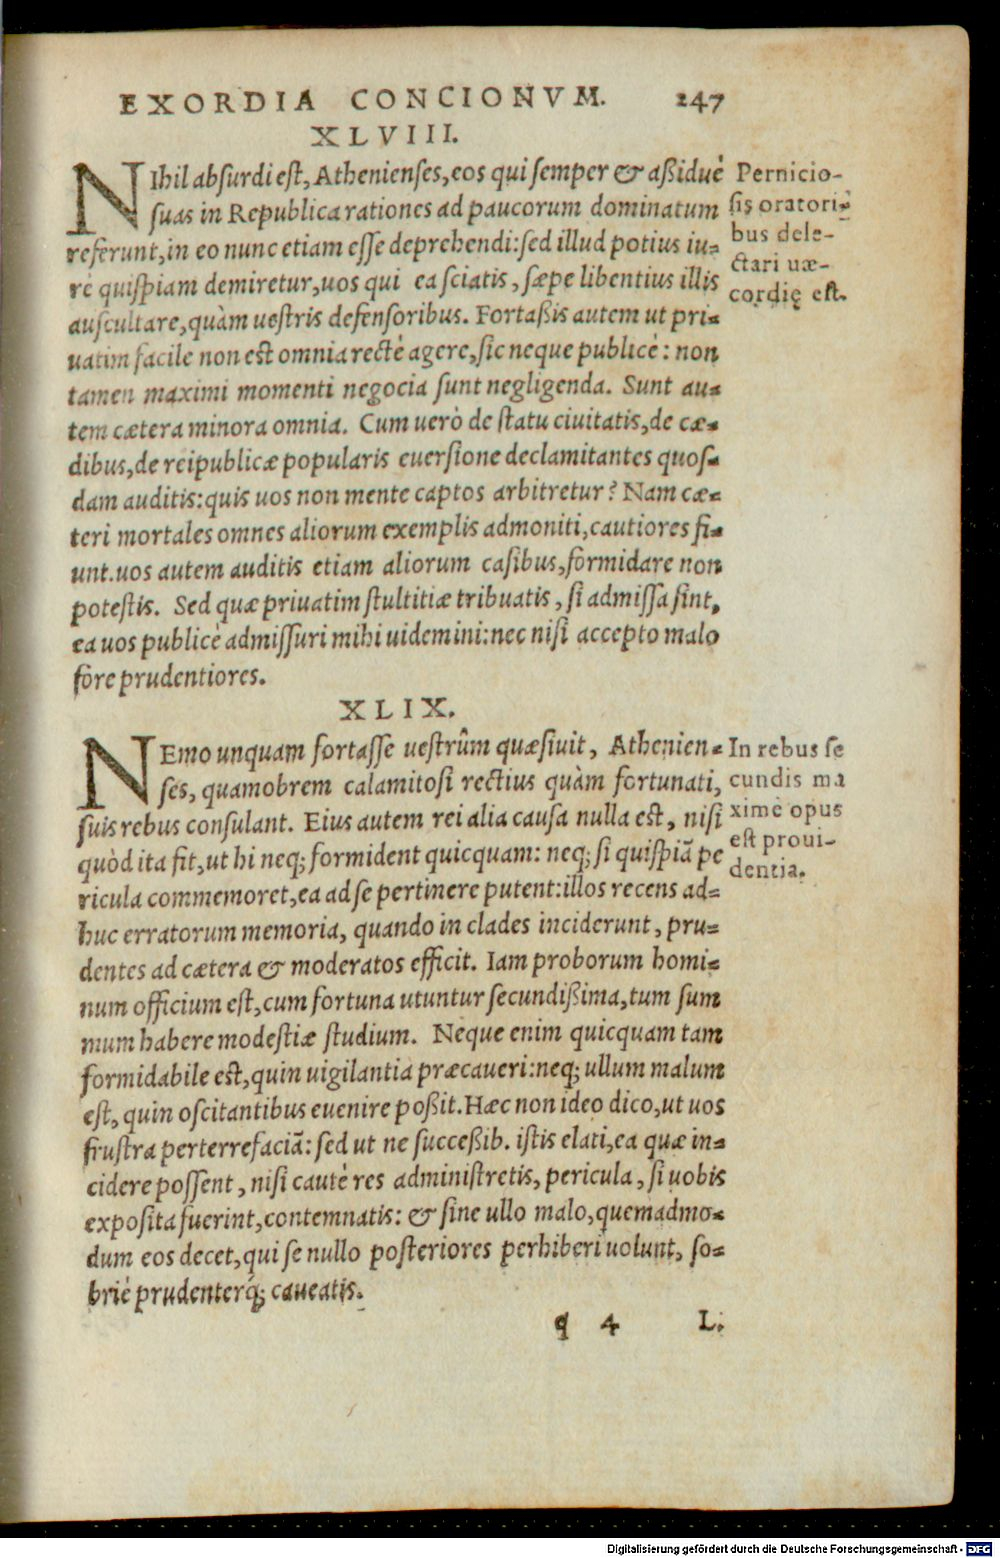 EXORDIA CONCIONVM. 247
XLVIII.
NIhil absurdi est, Athenienses, eos qui semper & aßiduè
suas in Republica rationes ad paucorum dominatum
referunt, in eo nunc etiam esse deprehendi: sed illud potius iu-
re quispiam demiretur, uos qui ea sciatis, sæpe libentius illis
auscultare, quàm uestris defensoribus. Fortaßis autem ut pri-
uatim facile non est omnia rectè agere, sic neque publicè: non
tamen maximi momenti negocia sunt negligenda. Sunt au-
tem cætera minora omnia. Cum uerò de statu ciuitatis, de cæ-
dibus, de reipublicæ popularis euersione declamitantes quos-
dam auditis: quis uos non mente captos arbitretur? Nam cæ-
teri mortales omnes aliorum exemplis admoniti, cautiores fi-
unt. uos autem auditis etiam aliorum casibus, formidare non
potestis. Sed quæ priuatim stultitiæ tribuatis, si admissa sint,
ea uos publicè admissuri mihi uidemini: nec nisi accepto malo
fore prudentiores.
Pernicio-
sis oratori-
bus dele-
ctari uæ-
cordię est.
XLIX.
NEmo unquam fortasse uestrûm quæsiuit, Athenien-
ses, quamobrem calamitosi rectius quàm fortunati,
suis rebus consulant. Eius autem rei alia causa nulla est, nisi
quòd ita fit, ut hi neq; formident quicquam: neq; si quispiã pe
ricula commemoret, ea ad se pertinere putent: illos recens ad-
huc erratorum memoria, quando in clades inciderunt, pru-
dentes ad cætera & moderatos efficit. Iam proborum homi-
num officium est, cum fortuna utuntur secundißima, tum sum
mum habere modestiæ studium. Neque enim quicquam tam
formidabile est, quin uigilantia præcaueri: neq; ullum malum
est, quin oscitantibus euenire poßit. Hæc non ideo dico, ut uos
frustra perterrefaciã: sed ut ne succeßib. istis elati, ea quæ in-
cidere possent, nisi cautè res administretis, pericula, si uobis
exposita fuerint, contemnatis: & sine ullo malo, quemadmo-
dum eos decet, qui se nullo posteriores perhiberi uolunt, so-
briè prudenterq́; caueatis.
In rebus se
cundis ma
ximè opus
est proui-
dentia.
q 4 L.
Digitalisierung gefördert durch die Deutsche Forschungsgemeinschaft - DFG